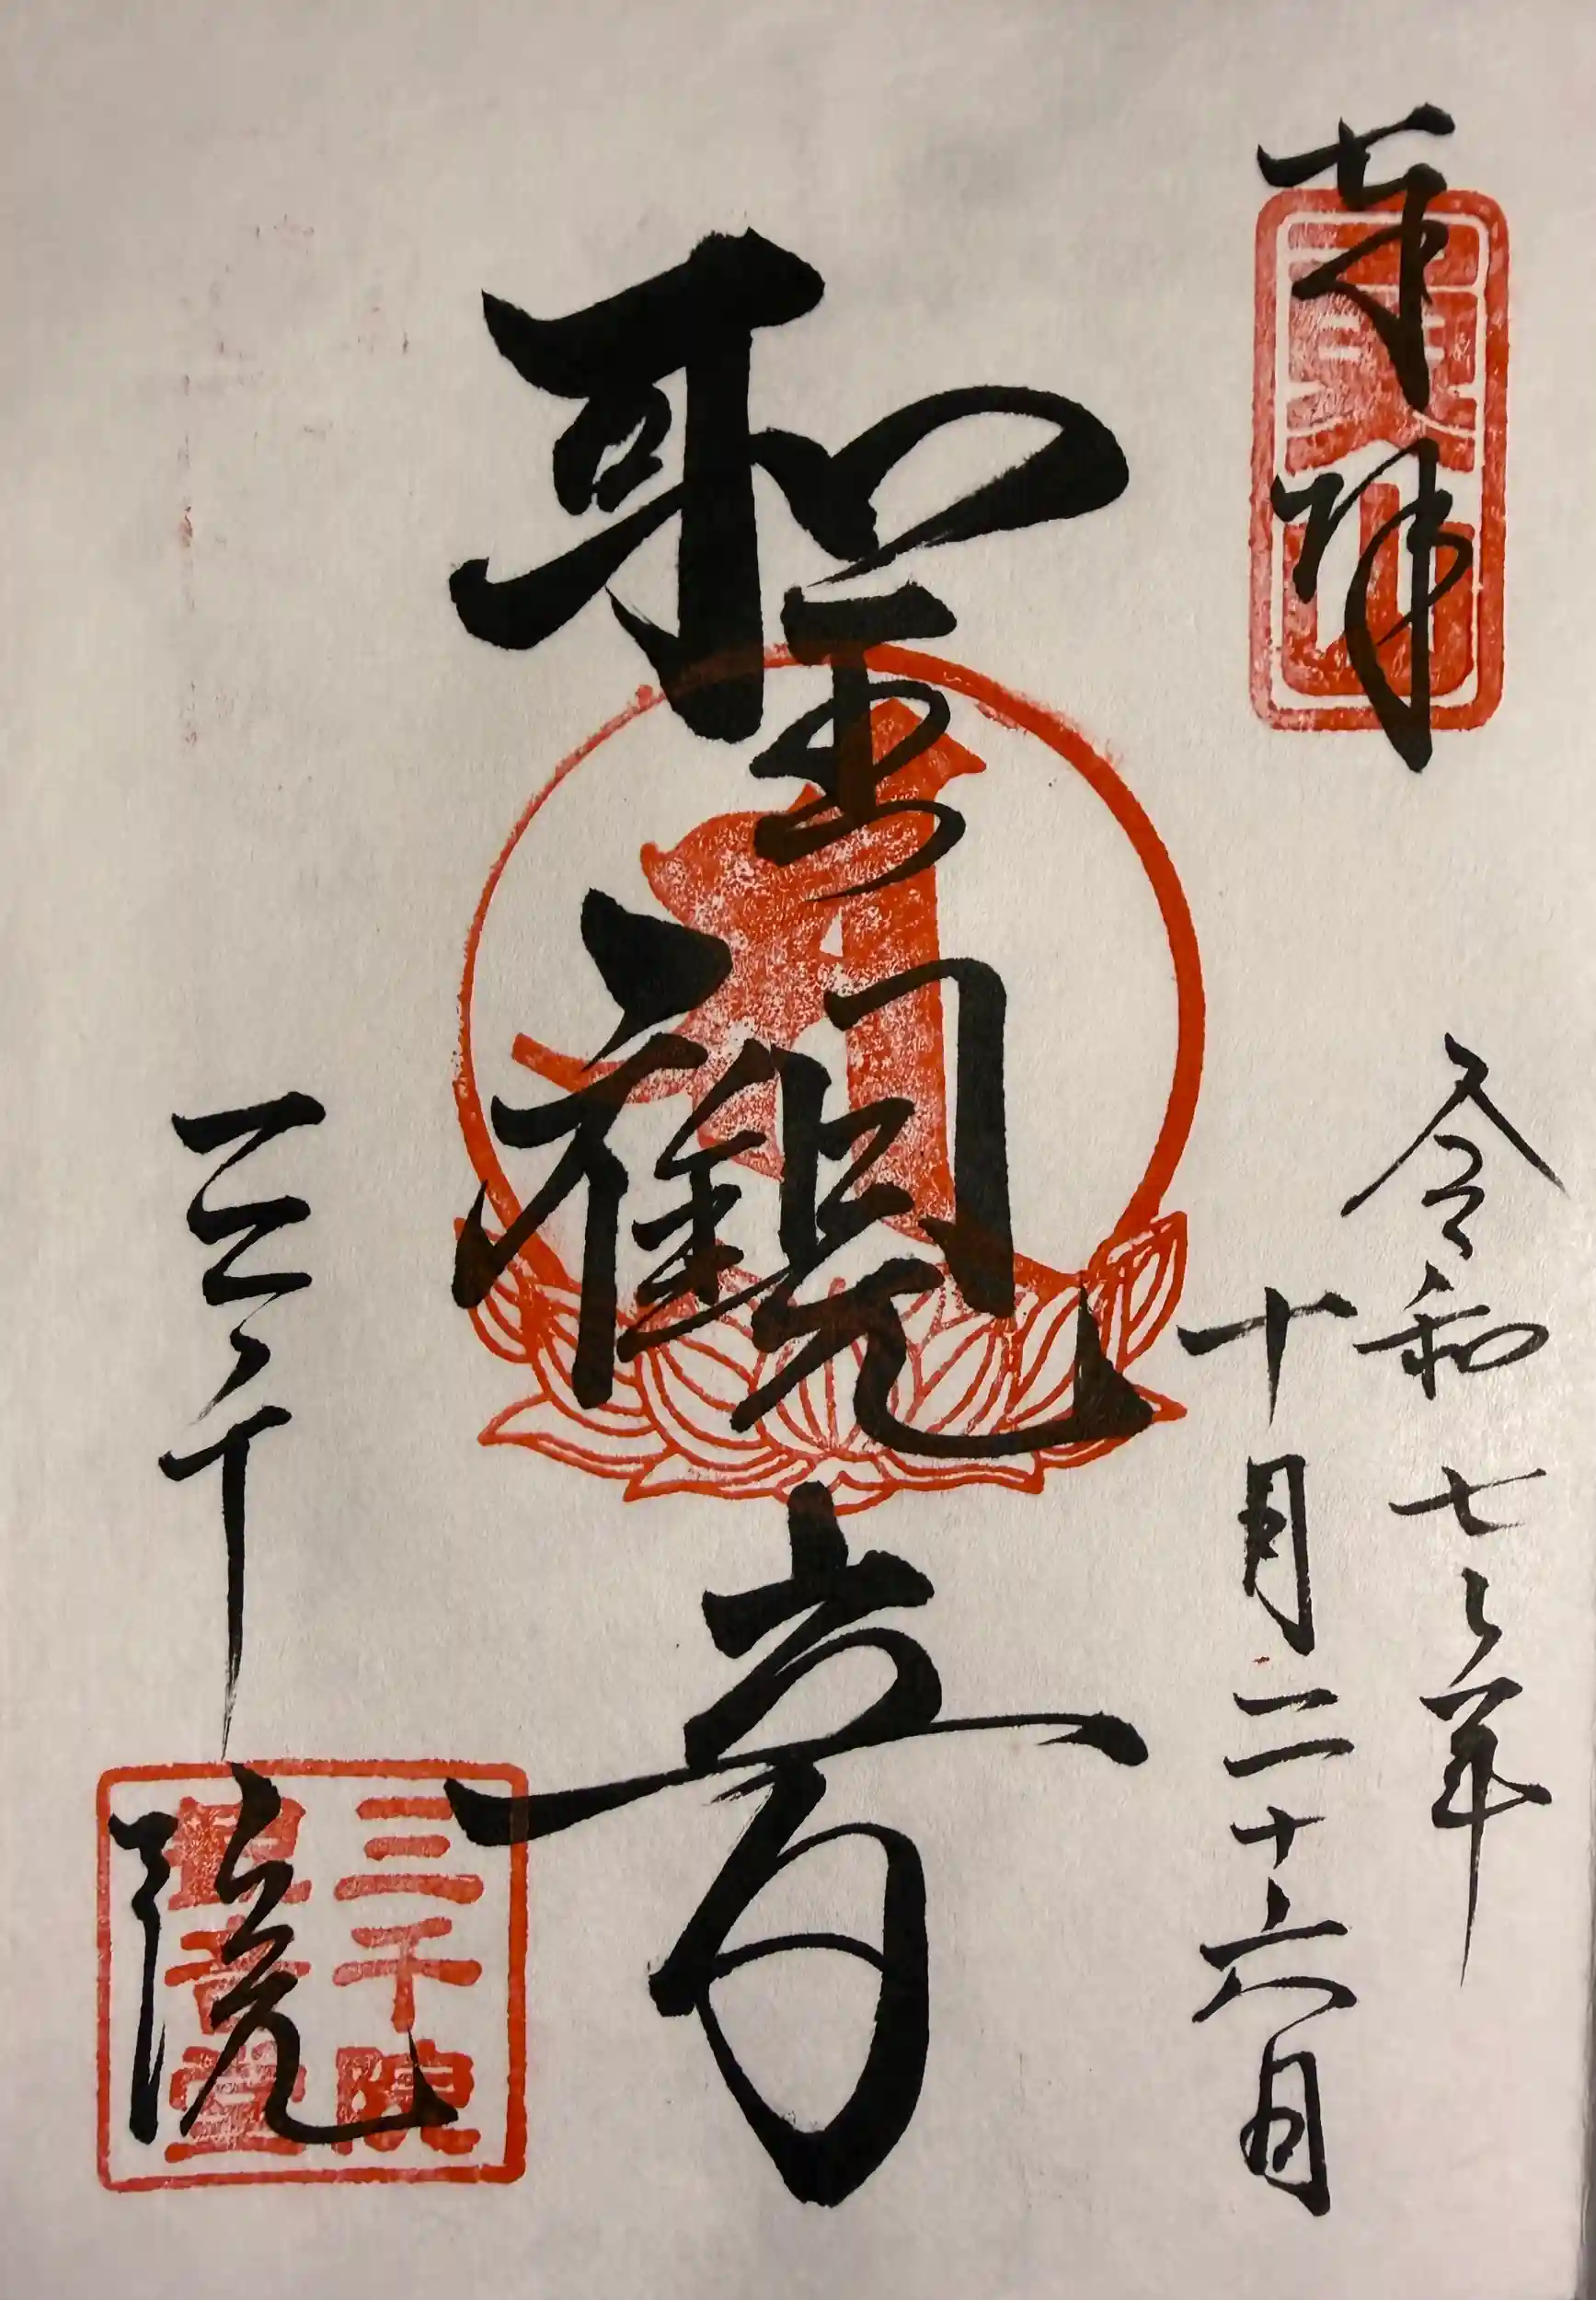 奉拝
令和七年
十月二十六日
聖観音
三千院
魚山
三千院